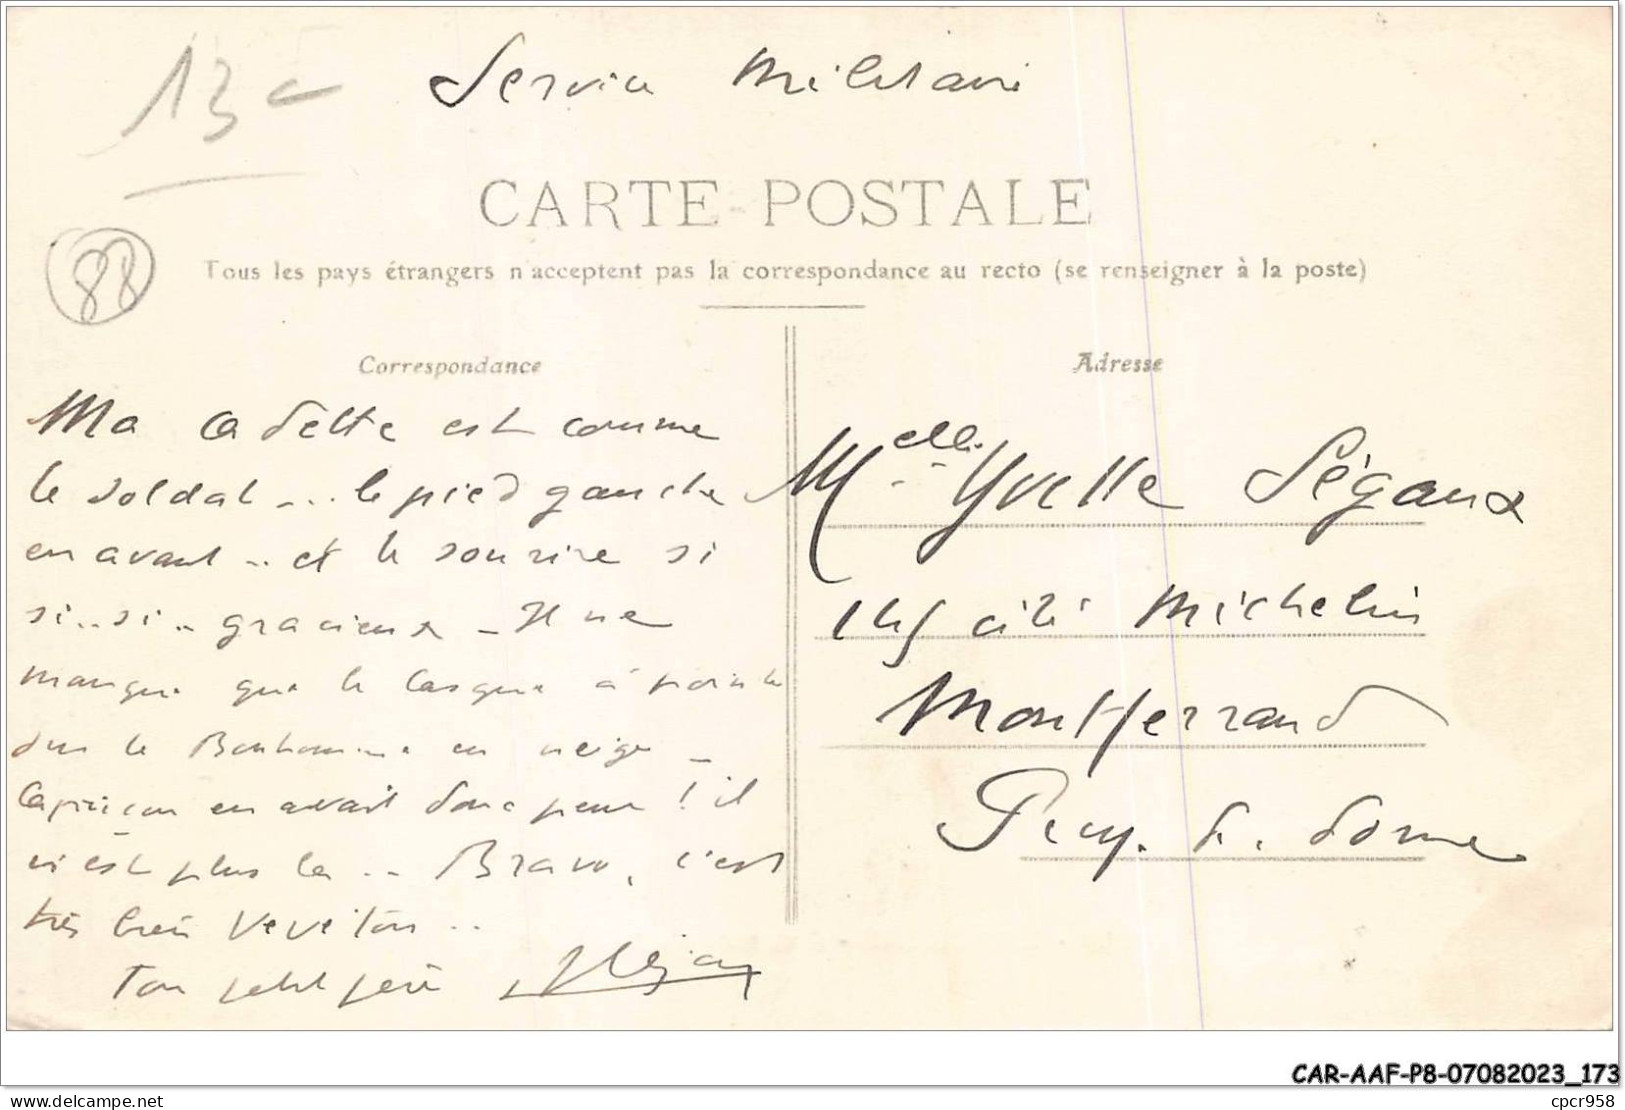 13 Service Militaire
CARTE POSTALE
88
Tous les pays étrangers n'acceptent pas la correspondance au recto (se renseigner à la poste)
Correspondance
Adresse
Ma Cadette est comme
le soldat -... le pied gauche
en avant .. et le sourire si
si..si.. gracieux - Il ne
manque que le casque à pointe
du le Bonhomme en neige -
en avait donc peur ! il
n'est plus là .. Bravo, c'est
très bien Veveton ..
Ton petit père
Melle Yvette Ségaux
cité Michelin
Montferrand
Puy. d. dome
CAR-AAF-P8-07082023_173
www.delcampe.net
cpcr958